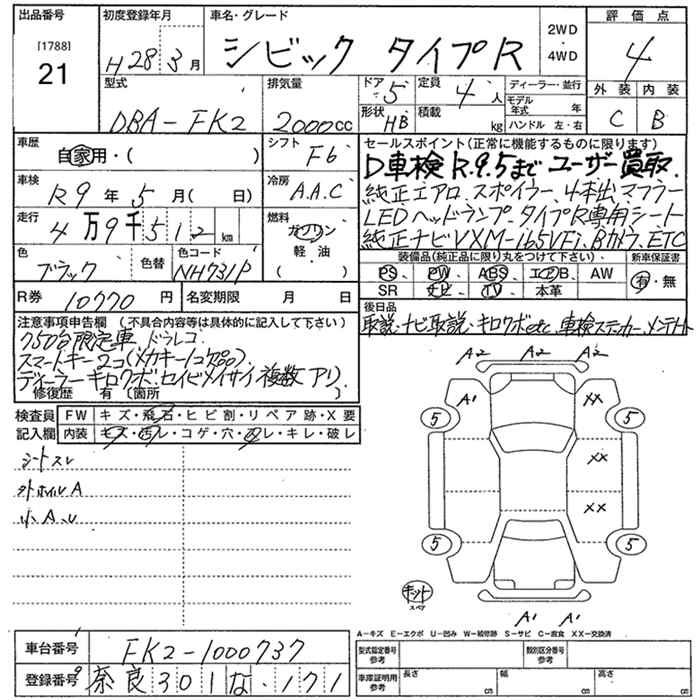 出品番号
[1788]
21
初度登録年月
H28年3月
車名・グレード
シビック タイプR
2WD
・
4WD
評価点
4
外装 内装
C B
型式
DBA-FK2
排気量
2000cc
ドア 5
定員 4人
形状 HB
積載 kg
ディーラー・並行
モデル年式 年
ハンドル 左・右
車歴
自家用・( )
シフト
F6
車検
R9年5月( 日)
冷房
A.A.C
走行
4万9千512km
燃料
ガソリン
軽油
( )
色
ブラック
色替
色コード
NH731P
R券 10770円
名変期限 月 日
セールスポイント(正常に機能するものに限ります)
D車検R.9.5まで ユーザー買取.
純正エアロ、スポイラー、4本出マフラー
LEDヘッドランプ、タイプR専用シート
純正ナビVXM-165VFi、Bカメラ、ETC
装備品(純正品に限り丸をつけて下さい)
PS、PW、ABS、エアB、AW
SR ナビ、TV 本革
新車保証書
有・無
後日品
取説、ナビ取説、キロクボetc、車検ステッカー、メンテノート
注意事項申告欄 (不具合内容等は具体的に記入して下さい)
750台限定車 ドラレコ
スマートキー2コ(メカキー1コ欠品)
ディーラーキロクボ、セイビメイサイ複数アリ)
修復歴 有〔箇所 〕
検査員記入欄
FW キズ・飛石・ヒビ割・リペア跡・X要
内装 キズ・凹レ・コゲ・穴・スレ・キレ・破レ
シートスレ
外ホイルA
小A.U
A2 A2 A2
A1 XX
5 5
XX
XX
5 5
キット
スペア
A1 A1
A-キズ E-エクボ U-凹み W-補修跡 S-サビ C-腐食 XX-交換済
車台番号 FK2-1000737
登録番号 奈良301な・171
型式指定番号
参考
類別区分番号
参考
車庫証明用
参考
長さ cm
幅 cm
高さ cm